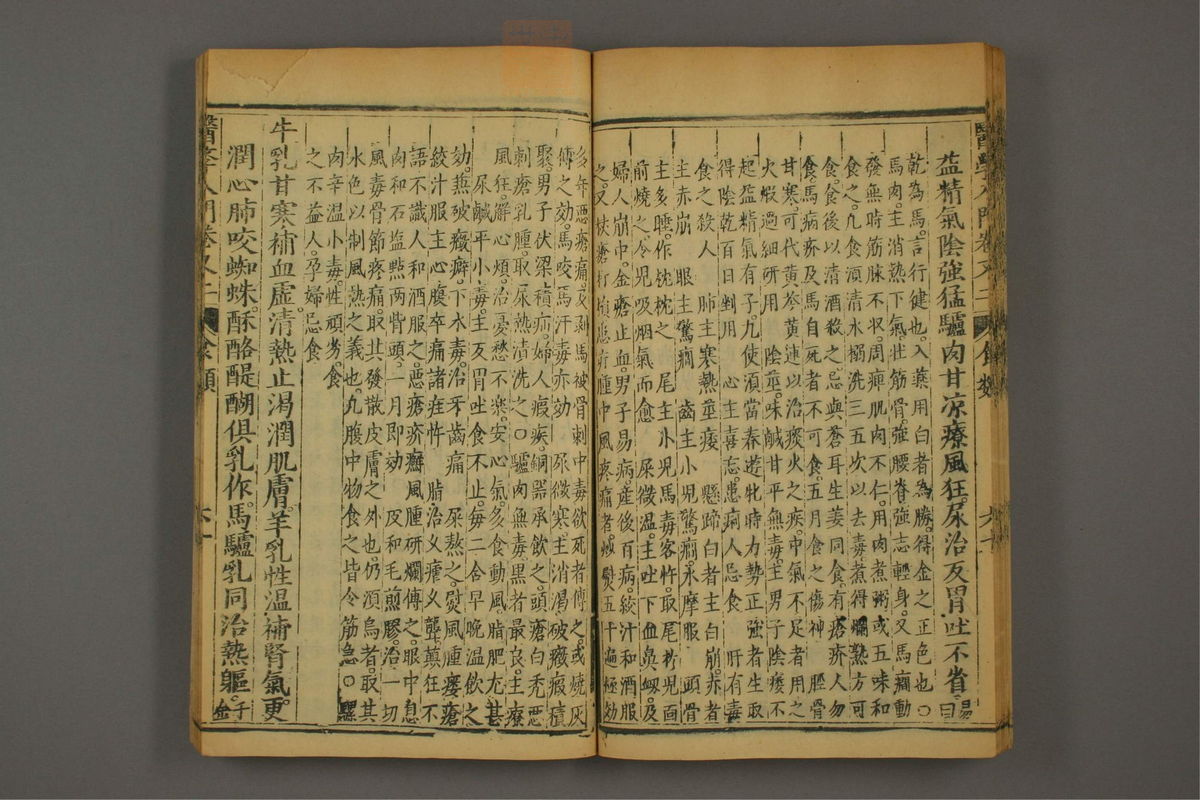 醫學入門卷又二 食類 六十
益精氣陰強猛驢肉甘凉療風狂尿治反胃吐不省易曰
乾為馬言行健也入藥用白者為勝得金之正色也○
馬肉主消熱下氣壮筋骨強腰脊強志輕身又馬癎動
發無時筋脉不收周痺肌肉不仁用肉煮粥或五味和
食之凢食湏清水搦洗三五次以去毒煮得爛熟方可
食食後以清酒殺之忌與蒼耳生姜同食有瘡疥人勿
食馬病疥及馬自死者不可食五月食之傷神 脛骨
甘寒可代黄芩黄連以治痰火之疾中氣不足者用之
火煅過細研用 陰莖味鹹甘平無毒主男子陰痿不
起益精氣有子凢使湏當春遊牝時力勢正強者生取
得陰乾百日剉用 心主喜忘患痢人忌食 肝有毒
食之殺人 肺主寒熱莖痿 懸蹄白者主白崩赤者
主赤崩 眼主驚癎 齒主小児驚癎水摩服 頭骨
主多睡作枕枕之 尾主小児馬毒客忤取尾於児面
前燒之令児吸烟氣而愈 屎微温主吐下血鼻衂及
婦人崩中金瘡止血男子易病產後百病絞汁和酒服
之又杖瘡打損患疔腫中風疼痛者炒熨五十遍極効
多年惡瘡痛或剥馬被骨刺中毒欲死者傅之或燒灰
傅之効馬咬馬汗毒亦効 尿微寒主消渴破癥瘕積
聚男子伏梁積疝婦人瘕疾銅器承飲之頭瘡白秃惡
刺瘡乳腫取尿熱漬洗之○驢肉無毒黒者最良主療
風狂解心煩治憂愁不樂安心氣多食動風脂肥尤甚
尿鹹平小毒主反胃吐食不止每二合早晩温飲之
効燕破癥癖下水毒治牙齒痛 屎熬之熨風腫瘻瘡
絞汁服主心腹卒痛諸疰忤 脂治乆瘧乆聾蕀狂不
語不識人和酒服之惡瘡疥癬風腫研爛傅之服中息
肉和石塩㸃两眥頭一月即効 皮和毛煎膠治一切
風毒骨節疼痛取其發散皮膚之外也仍湏烏者取其
水色以制風熱之義也凢腹中物食之皆令筋急○騾
肉辛温小毒性頑劣食
之不益人孕婦忌食
牛乳甘寒補血虛清熱止渴潤肌膚羊乳性温補腎氣更
潤心肺咬蜘蛛酥酪醍醐俱乳作馬驢乳同治熱軀千金
醫學入門卷又二 食類 六十一